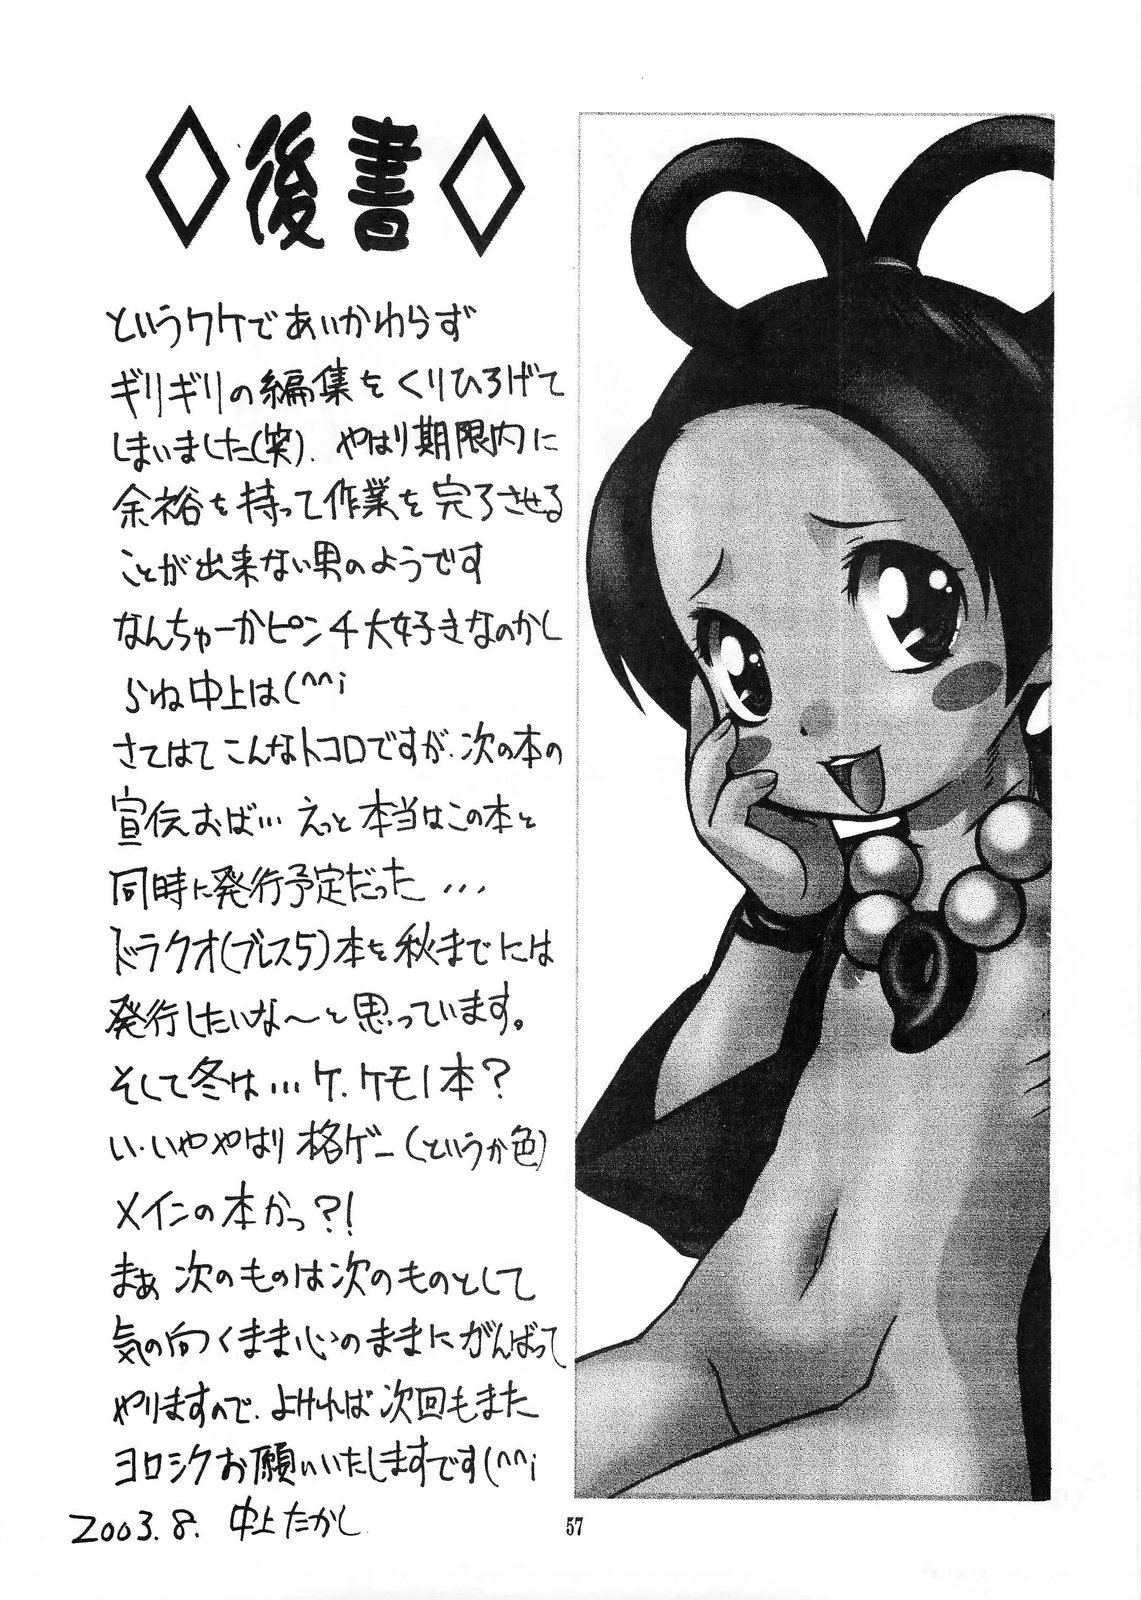 ◇後書◇
というワケであいかわらず
ギリギリの編集をくりひろげて
しまいました(笑). やはり期限内に
余裕を持って作業を完了させる
ことが出来ない男のようです
なんちゅーかピンチ大好きなのかし
らね中上は(^^;
さてはてこんなトコロですが、次の本の
宣伝おば… えっと本当はこの本と
同時に発行予定だった...
ドラクオ(ブレス5)本を秋までには
発行したいな〜と思っています。
そして冬は...ケ、ケモノ本?
い、いややはり格ゲー(というか色)
メインの本かっ?!
まぁ次のものは次のものとして
気の向くまま心のままにがんばって
やりますので、よければ次回もまた
ヨロシクお願いいたしますです(^^;
2003.8. 中上たかし
57